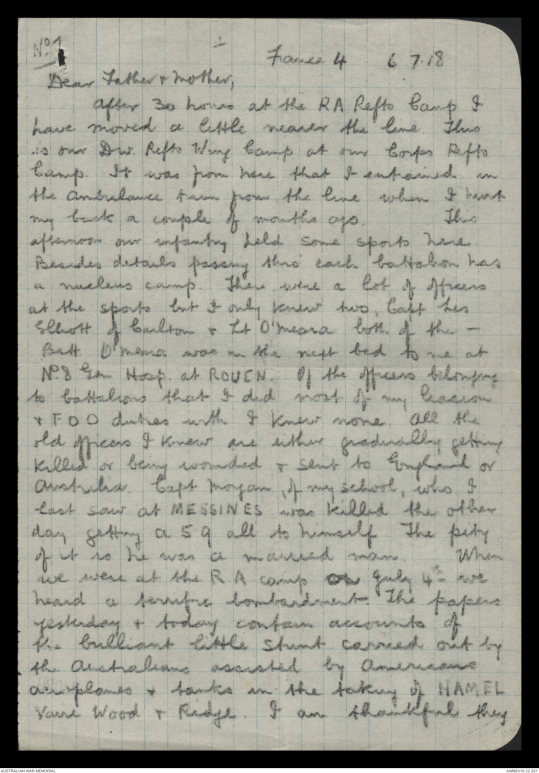 No 1
France 4 6.7.18
Dear Father & Mother,
After 30 hours at the RA Refts Camp I
have moved a little nearer the line. This
is our Div. Refts Wing Camp at our Corps Refts
Camp. It was from here that I entrained in
the Ambulance train from the line when I hurt
my back a couple of months ago. This
afternoon our infantry held some sports here.
Besides details passing thro' each battalion has
a nucleus camp. There were a lot of officers
at the sports but I only knew two, Capt Les
Elliott of Carlton & Lt O'Meara both of the —
Batt. O'Meara was in the next bed to me at
No 8 Gen Hosp. at ROUEN. Of the officers belonging
to battalions that I did most of my liaison
& F O O duties with I knew none. All the
old officers I knew are either gradually getting
killed or being wounded & sent to England or
Australia. Capt Morgan, of my school, who I
last saw at MESSINES was killed the other
day getting a 5 9 all to himself. The pity
of it is he was a married man. When
we were at the R A camp on July 4th we
heard a terrific bombardment. The papers
yesterday & today contain accounts of
the brilliant little stunt carried out by
the Australians assisted by Americans
aeroplanes & tanks in the taking of HAMEL
Vaire Wood & Ridge. I am thankful they
AUSTRALIAN WAR MEMORIAL